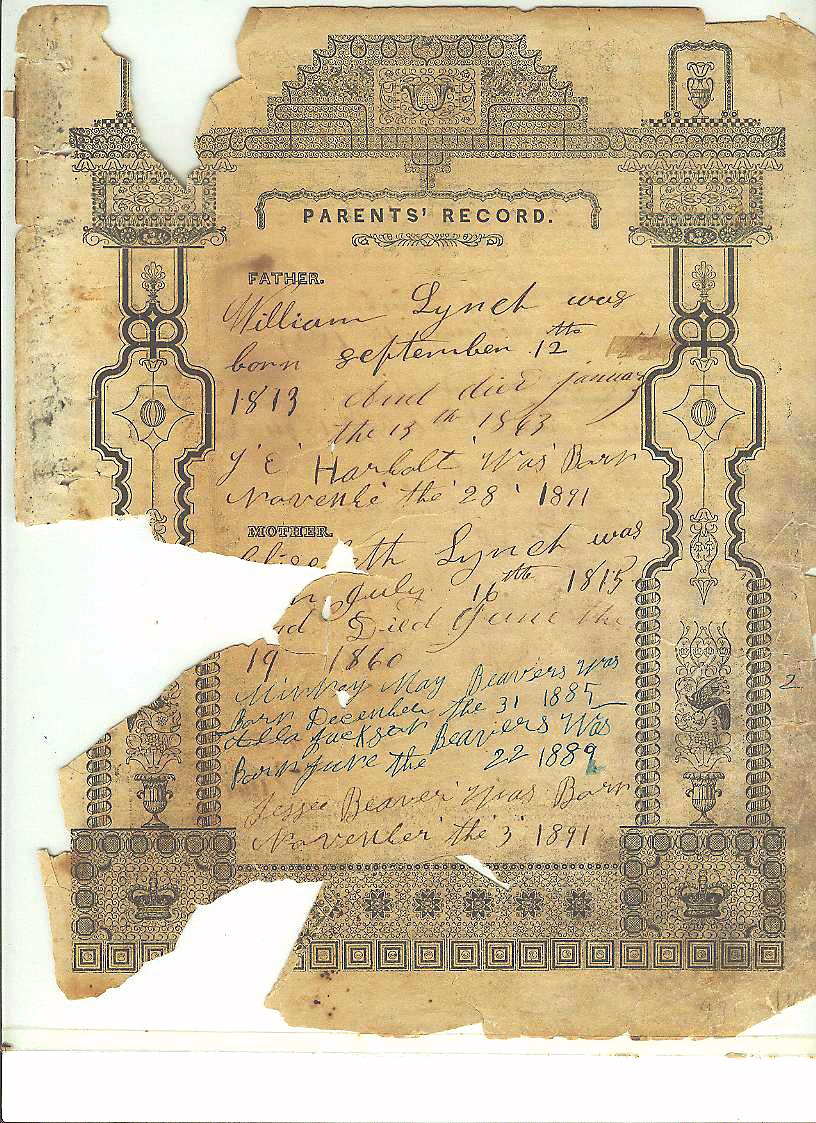 PARENTS' RECORD.
FATHER.
William Lynch was
born september 12th
1813 And died January
the 13th 1863
J E Harbolt Was Born
Novenbe the 28 1891
MOTHER.
Elizabeth Lynch was
July 16th 1815
and Died June the
19 1860
May Beavers Was
Born December the 31 1885
Jackson Beavers Was
Born June the 22 1889
Jessee Beaver Was Born
November the 3 1891
2